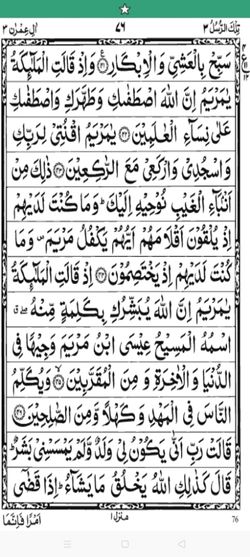 اٰل عِمْرٰن ٣ ٧٦ تِلْكَ الرُّسُلُ ٣
سَبِّحْ بِالْعَشِيِّ وَالْاِبْكَارِ ﴿٤١﴾ وَاِذْ قَالَتِ الْمَلٰٓئِكَةُ
يٰمَرْيَمُ اِنَّ اللّٰهَ اصْطَفٰىكِ وَطَهَّرَكِ وَاصْطَفٰىكِ
عَلٰى نِسَآءِ الْعٰلَمِيْنَ ﴿٤٢﴾ يٰمَرْيَمُ اقْنُتِيْ لِرَبِّكِ
وَاسْجُدِيْ وَارْكَعِيْ مَعَ الرّٰكِعِيْنَ ﴿٤٣﴾ ذٰلِكَ مِنْ
اَنْۢبَآءِ الْغَيْبِ نُوْحِيْهِ اِلَيْكَ ؕ وَمَا كُنْتَ لَدَيْهِمْ
اِذْ يُلْقُوْنَ اَقْلَامَهُمْ اَيُّهُمْ يَكْفُلُ مَرْيَمَ ۪ وَمَا
كُنْتَ لَدَيْهِمْ اِذْ يَخْتَصِمُوْنَ ﴿٤٤﴾ اِذْ قَالَتِ الْمَلٰٓئِكَةُ
يٰمَرْيَمُ اِنَّ اللّٰهَ يُبَشِّرُكِ بِكَلِمَةٍ مِّنْهُ ۖۗ
اسْمُهُ الْمَسِيْحُ عِيْسَى ابْنُ مَرْيَمَ وَجِيْهًا فِي
الدُّنْيَا وَالْاٰخِرَةِ وَ مِنَ الْمُقَرَّبِيْنَ ﴿٤٥﴾ وَيُكَلِّمُ
النَّاسَ فِي الْمَهْدِ وَكَهْلًا وَّمِنَ الصّٰلِحِيْنَ ﴿٤٦﴾
قَالَتْ رَبِّ اَنّٰى يَكُوْنُ لِيْ وَلَدٌ وَّلَمْ يَمْسَسْنِيْ بَشَرٌ ؕ
قَالَ كَذٰلِكِ اللّٰهُ يَخْلُقُ مَا يَشَآءُ ؕ اِذَا قَضٰٓى
اَمْرًا فَاِنَّمَا منزل ١ 76